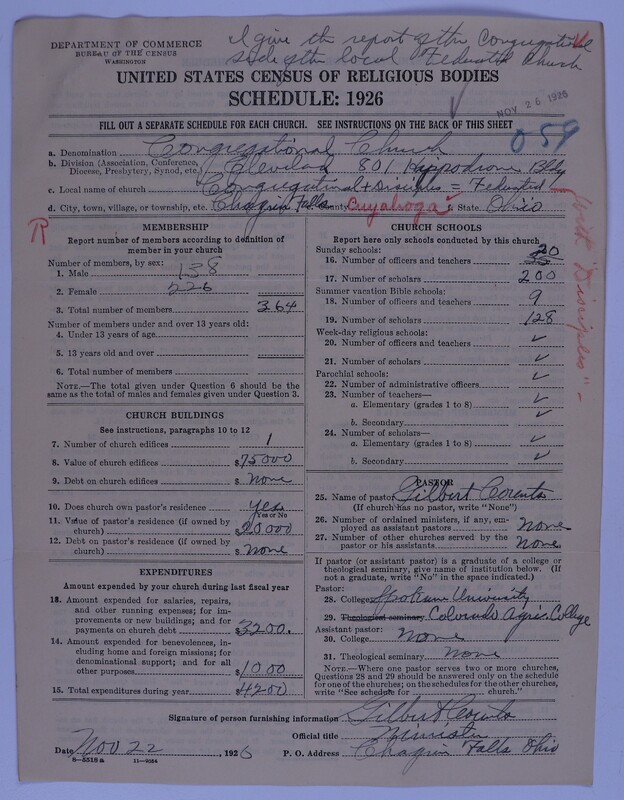 DEPARTMENT OF COMMERCE
BUREAU OF THE CENSUS
WASHINGTON
I give the report of the Congregational
side of the local Federated Church
UNITED STATES CENSUS OF RELIGIOUS BODIES
SCHEDULE: 1926
NOV 26 1926
FILL OUT A SEPARATE SCHEDULE FOR EACH CHURCH. SEE INSTRUCTIONS ON THE BACK OF THIS SHEET
059
a. Denomination Congregational Church
b. Division (Association, Conference, Diocese, Presbytery, Synod, etc.) Cleveland 801 Hippodrome Bldg
c. Local name of church Congregational & Disciples = Federated
d. City, town, village, or township, etc. Chagrin Falls County Cuyahoga State Ohio
with "Disciples" -
R
MEMBERSHIP
Report number of members according to definition of
member in your church
Number of members, by sex:
1. Male 138
2. Female 226
3. Total number of members 364
Number of members under and over 13 years old:
4. Under 13 years of age
5. 13 years old and over
6. Total number of members
NOTE.—The total given under Question 6 should be
the same as the total of males and females given under Question 3.
CHURCH BUILDINGS
See instructions, paragraphs 10 to 12
7. Number of church edifices 1
8. Value of church edifices $75000
9. Debt on church edifices $ none
10. Does church own pastor's residence Yes
Yes or No
11. Value of pastor's residence (if owned by
church) $20,000
12. Debt on pastor's residence (if owned by
church) $ none
EXPENDITURES
Amount expended by your church during last fiscal year
13. Amount expended for salaries, repairs,
and other running expenses; for im-
provements or new buildings; and for
payments on church debt $3200.
14. Amount expended for benevolences, in-
cluding home and foreign missions; for
denominational support; and for all
other purposes $1000
15. Total expenditures during year $4200
CHURCH SCHOOLS
Report here only schools conducted by this church
Sunday schools:
16. Number of officers and teachers 20
17. Number of scholars 200
Summer vacation Bible schools:
18. Number of officers and teachers 9
19. Number of scholars 128
Week-day religious schools:
20. Number of officers and teachers ✓
21. Number of scholars ✓
Parochial schools:
22. Number of administrative officers ✓
23. Number of teachers—
a. Elementary (grades 1 to 8) ✓
b. Secondary ✓
24. Number of scholars—
a. Elementary (grades 1 to 8) ✓
b. Secondary ✓
PASTOR
25. Name of pastor Gilbert Counts
(If church has no pastor, write "None")
26. Number of ordained ministers, if any, em-
ployed as assistant pastors none
27. Number of other churches served by the
pastor or his assistants none
If pastor (or assistant pastor) is a graduate of a college or
theological seminary, give name of institution below. (If
not a graduate, write "No" in the space indicated.)
Pastor:
28. College Spokane University
29. Theological seminary Colorado Agric. College
Assistant pastor:
30. College none
31. Theological seminary none
NOTE.—Where one pastor serves two or more churches,
Questions 28 and 29 should be answered only on the schedule
for one of the churches; on the schedules for the other churches,
write "See schedule for church."
Signature of person furnishing information Gilbert Counts
Official title Minister
Date Nov 22, 1926 P. O. Address Chagrin Falls Ohio
8—5518 a 11—9084